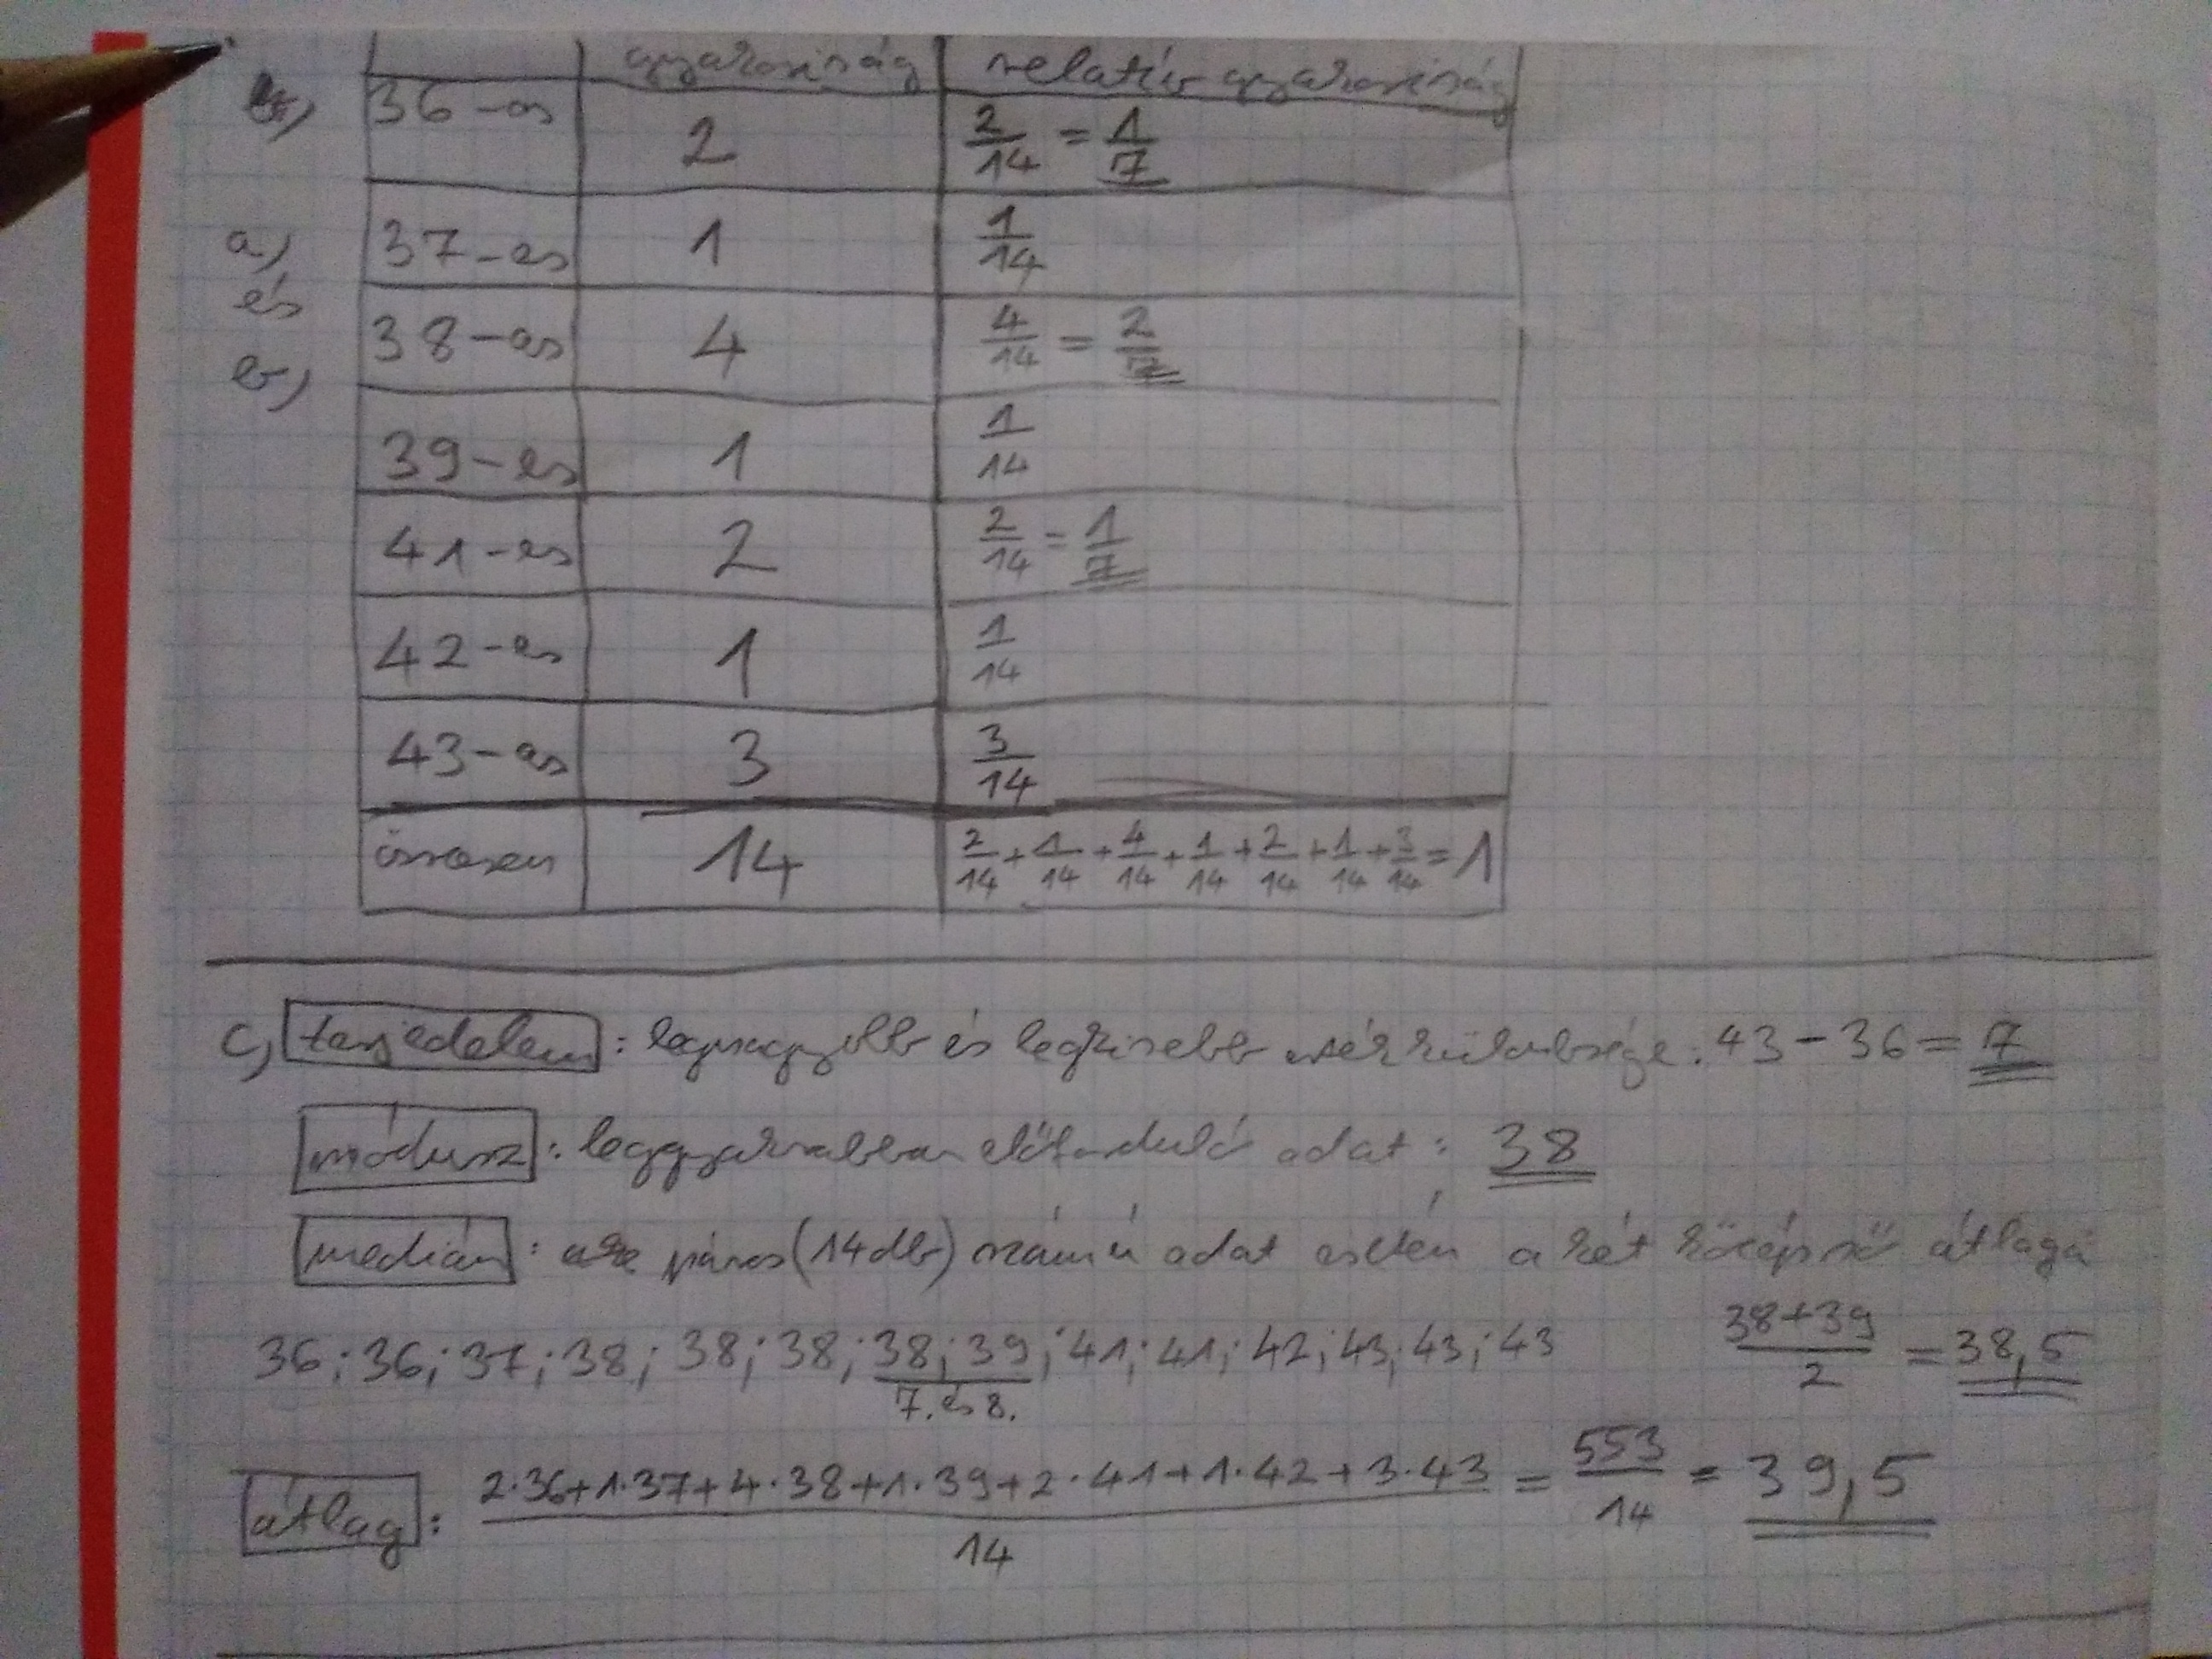 gyakoriság relatív gyakoriság
b, 36-os 2 2/14 = 1/7
a, 37-es 1 1/14
és
b, 38-as 4 4/14 = 2/7
39-es 1 1/14
41-es 2 2/14 = 1/7
42-es 1 1/14
43-as 3 3/14
összesen 14 2/14 + 1/14 + 4/14 + 1/14 + 2/14 + 1/14 + 3/14 = 1
c, terjedelem: legnagyobb és legkisebb mérkülönbsége: 43-36 = 7
módusz: leggyakrabban előforduló adat: 38
medián: páros (14 db) számú adat esetén a két középső átlaga
36; 36; 37; 38; 38; 38; 38; 39; 41; 41; 42; 43; 43; 43 (38+39)/2 = 38,5
7. és 8.
átlag: (2·36+1·37+4·38+1·39+2·41+1·42+3·43)/14 = 553/14 = 39,5